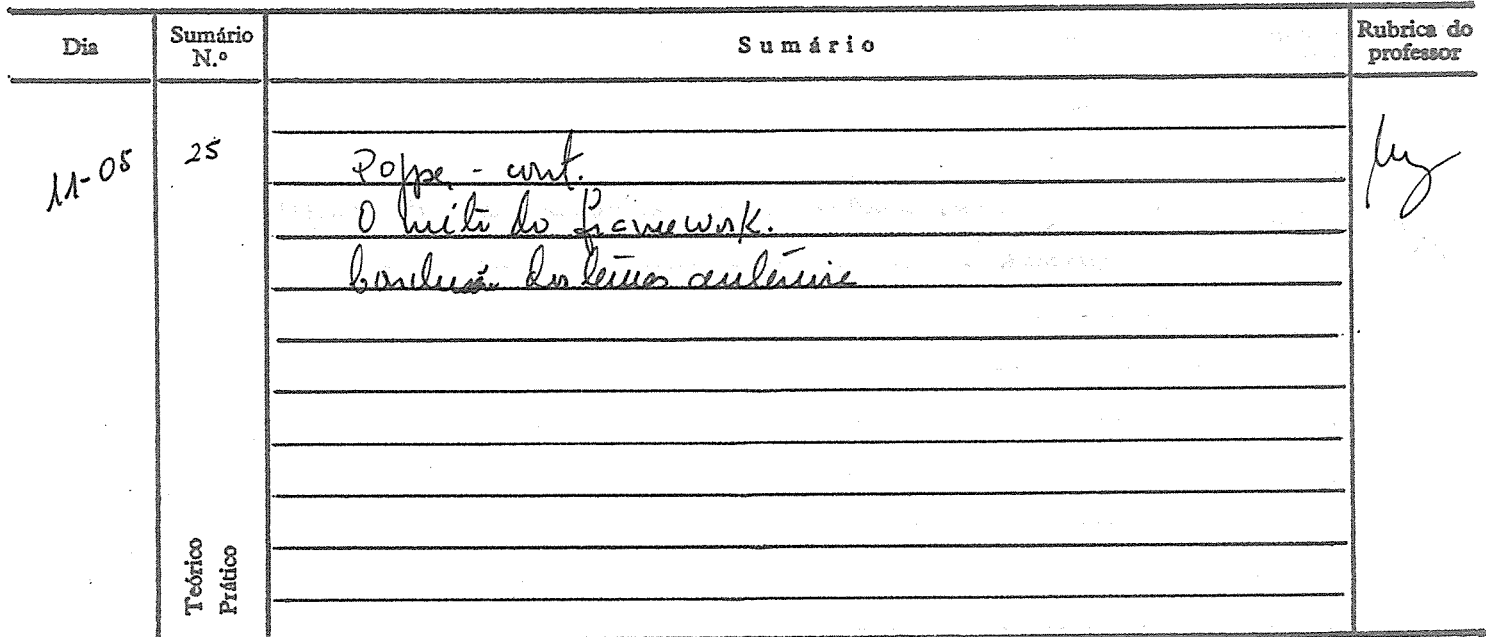 Dia
Sumário N.º
Sumário
Rubrica do professor
11-05
25
Popper - cont.
O mito do framework.
Conclusão dos temas anteriores
Teórico
Prático